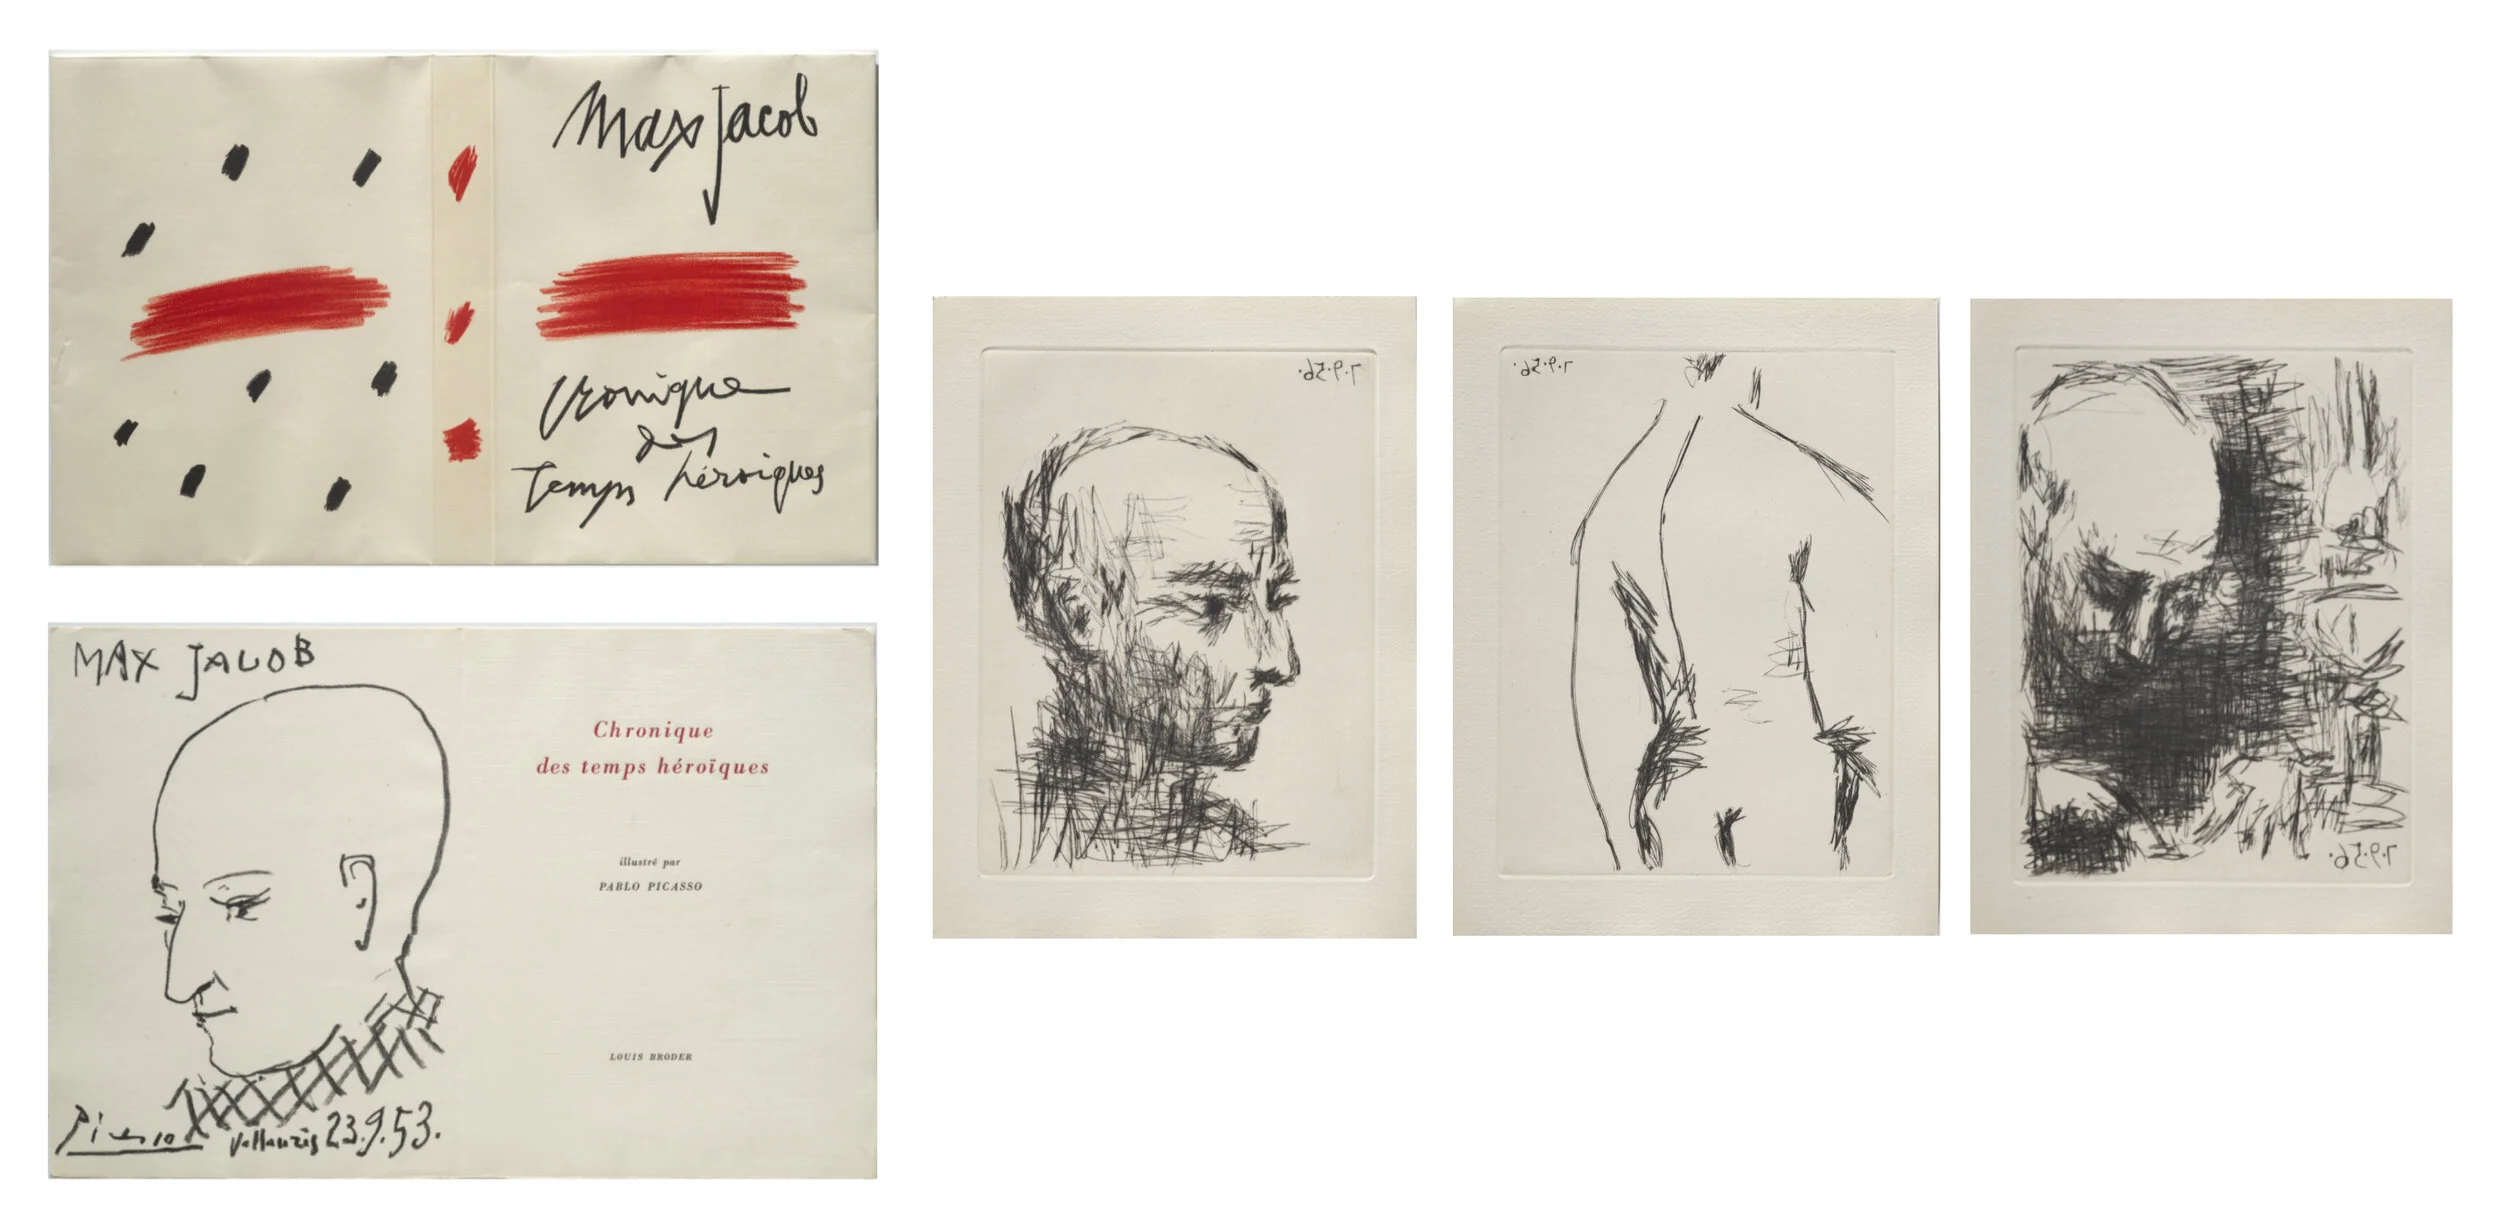 Max Jacob
Chronique
des
Temps héroïques
MAX JACOB
Picasso Vallauris 23.9.53.
Chronique
des temps héroïques
illustré par
PABLO PICASSO
LOUIS BRODER
7.9.56.
7.9.56.
7.9.56.